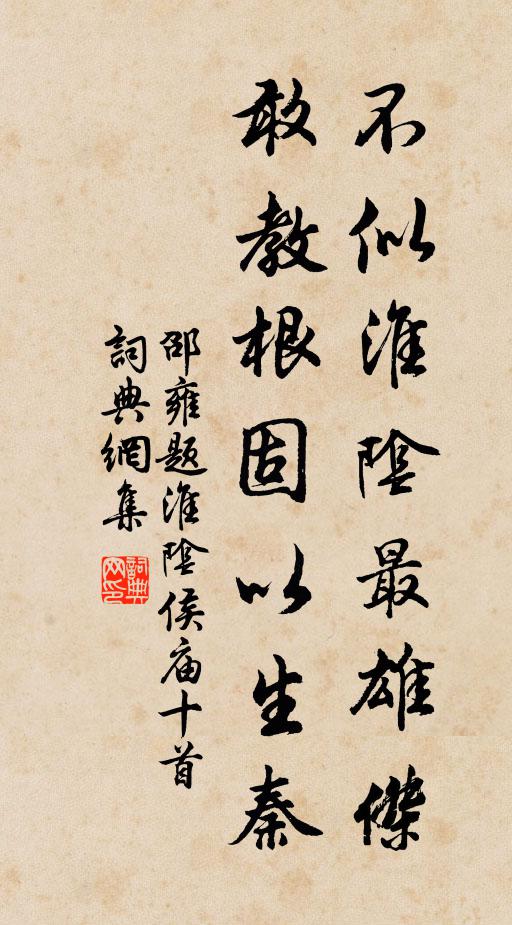 不似淮陰最雄傑
敢教根固以生秦
邵雍題淮陰侯庙十首
詞典網集
詞典网印